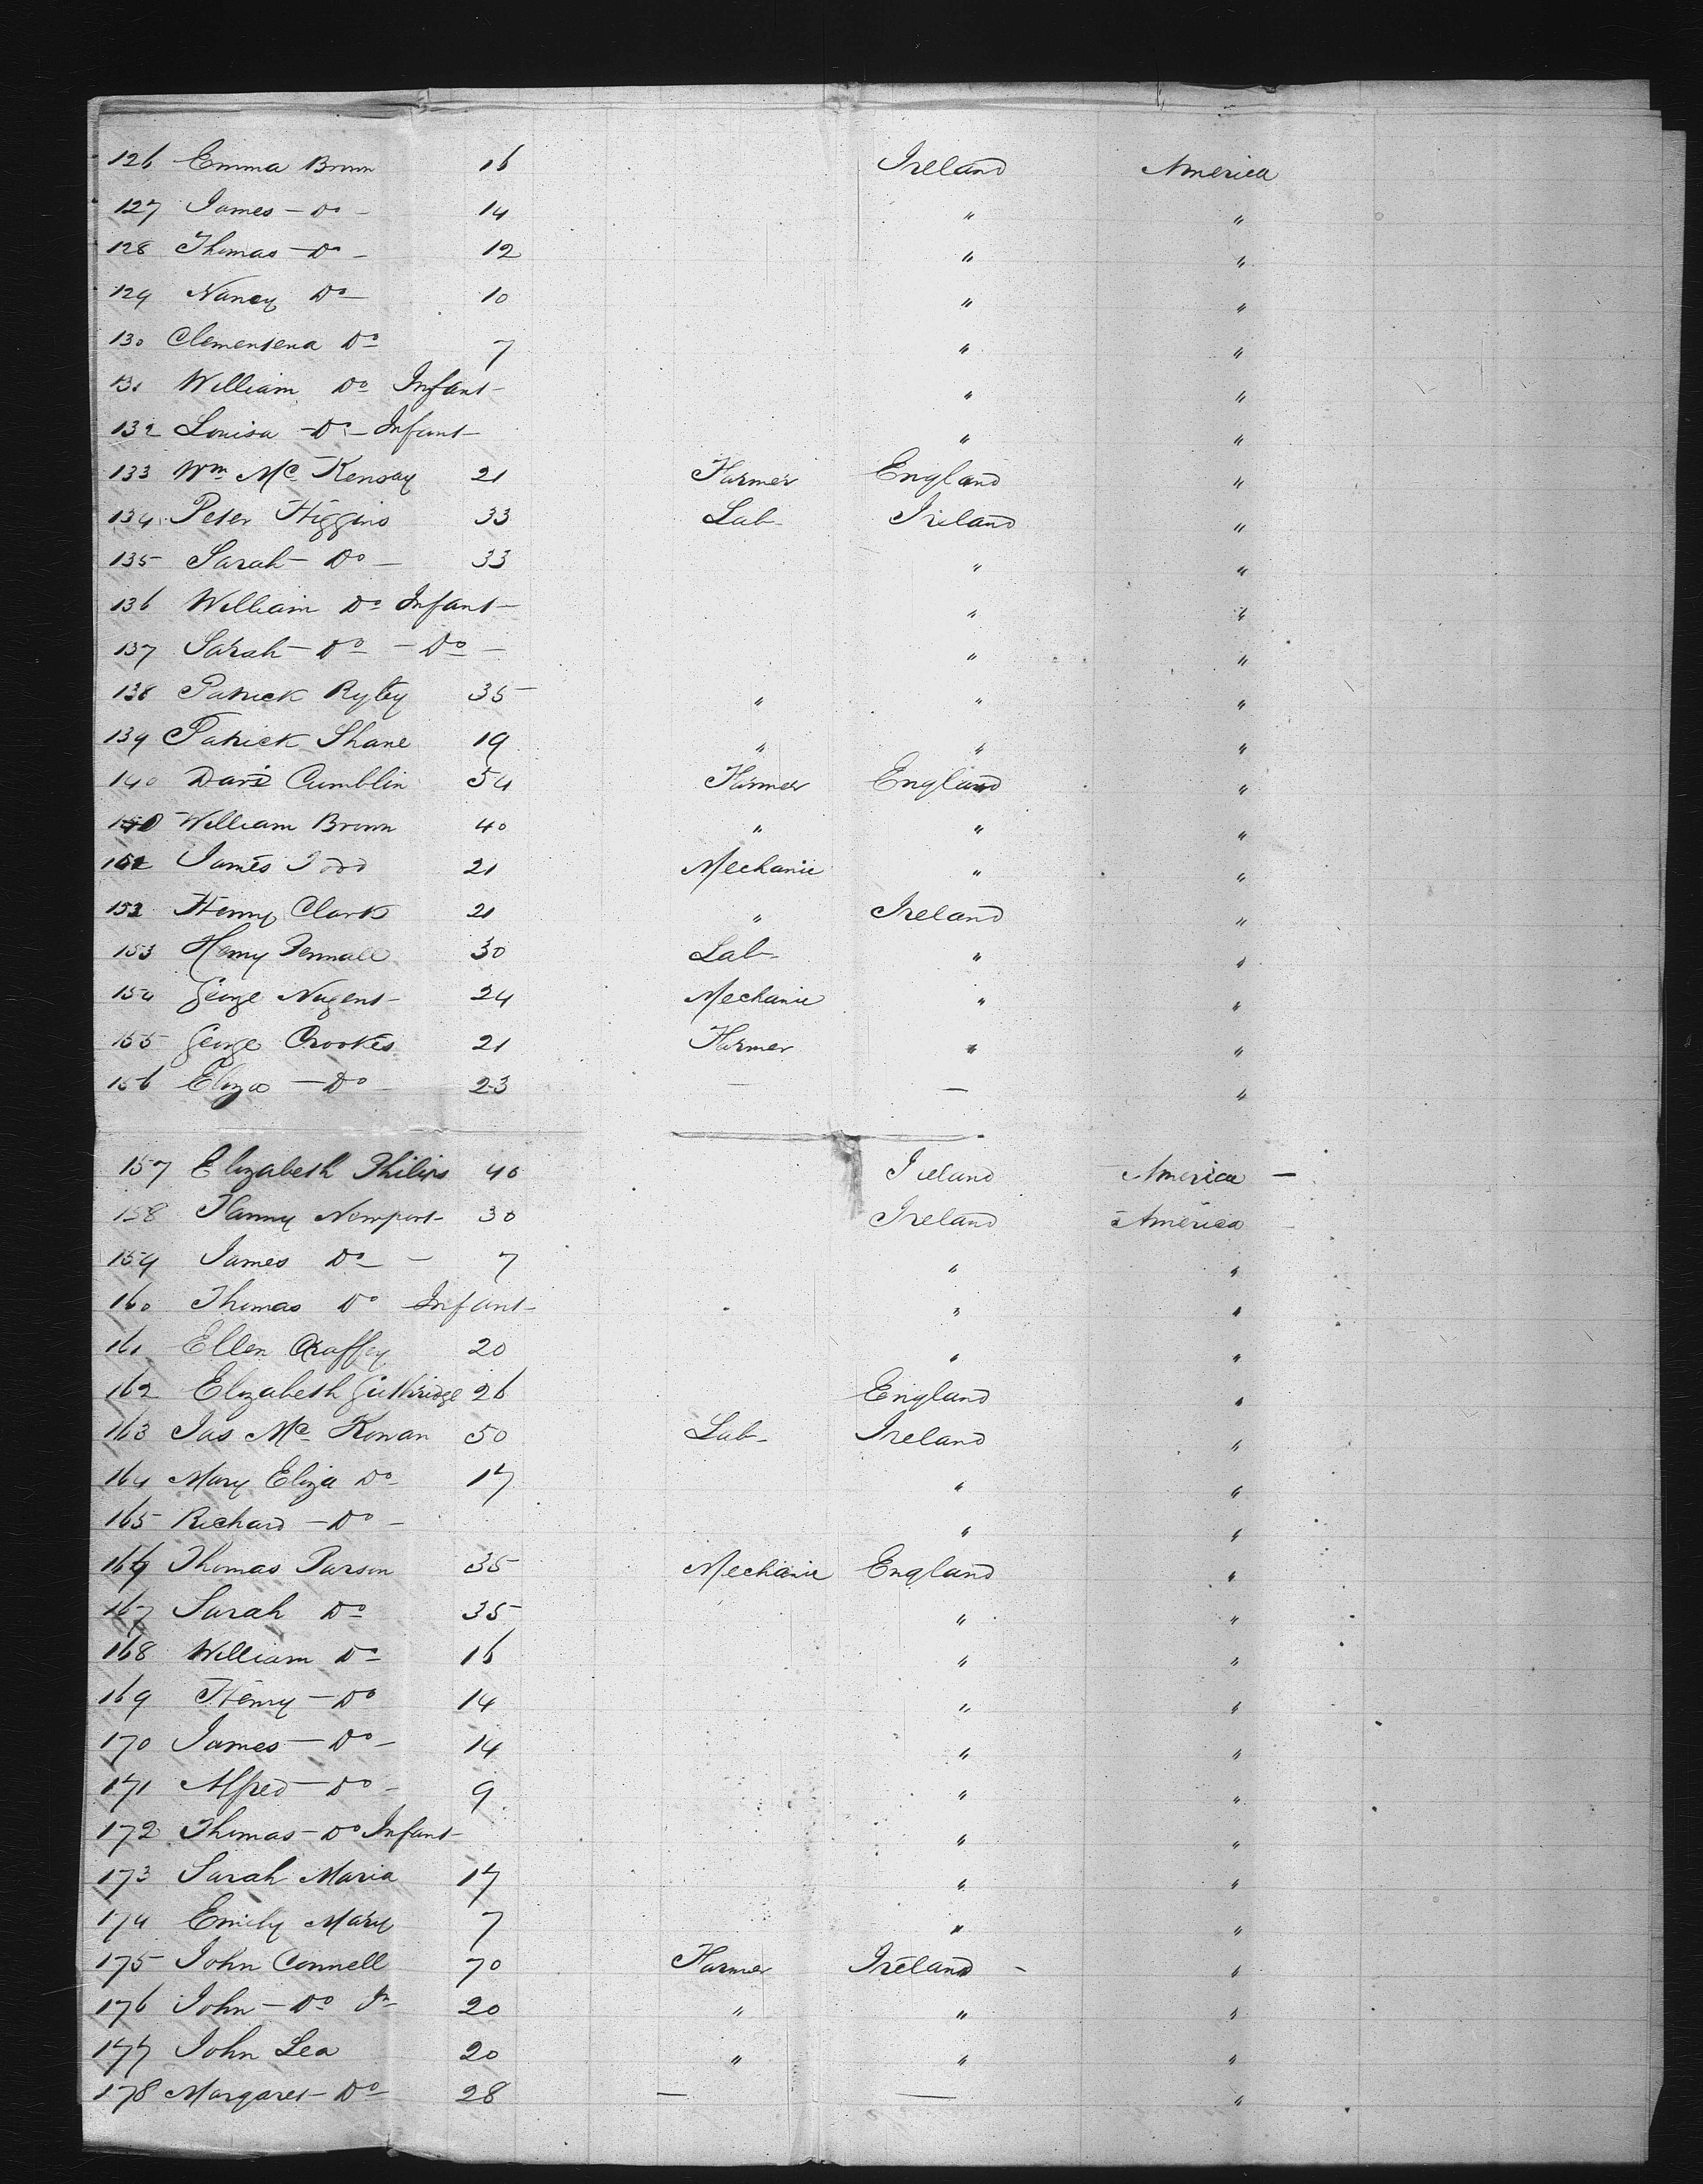 126 Emma Brown 16 Ireland America
127 James - Do - 14 " "
128 Thomas - Do - 12 " "
129 Nancy Do - 10 " "
130 Clementena Do 7 " "
131 William Do Infant " "
132 Louisa - Do - Infant " "
133 Wm Mc Kensay 21 Farmer England "
134 Peter Higgins 33 Lab- Ireland "
135 Sarah - Do - 33 " "
136 William Do Infant " "
137 Sarah - Do - Do - " "
138 Patrick Ryley 35 " " "
139 Patrick Shane 19 " " "
140 Cumblin 54 Farmer England "
William Brown 40 " " "
James Todd 21 Mechanic " "
152 Henry Clark 21 " Ireland "
153 Henry 30 Lab- " "
154 George Nugent 24 Mechanic " "
155 George Crookes 21 Farmer " "
156 Eliza - Do - 23 — — "
157 Elizabeth Philips 40 Ireland America -
158 Fanny Newport 30 Ireland America -
159 James Do - 7 " "
160 Thomas Do Infant " "
161 Ellen 20 " "
162 Elizabeth Guthridge 26 England "
163 Jas Mc Konan 50 Lab- Ireland "
164 Mary Eliza Do 17 " "
165 Richard - Do - " "
166 Thomas Parson 35 Mechanic England "
167 Sarah Do 35 " "
168 William Do 16 " "
169 Henry - Do 14 " "
170 James - Do - 14 " "
171 Alfred - Do - 9 " "
172 Thomas - Do Infant " "
173 Sarah Maria 17 " "
174 Emily Mary 7 " "
175 John Connell 70 Farmer Ireland - "
176 John - Do Jr 20 " " "
177 John Lea 20 " " "
178 Margaret - Do 28 — — "